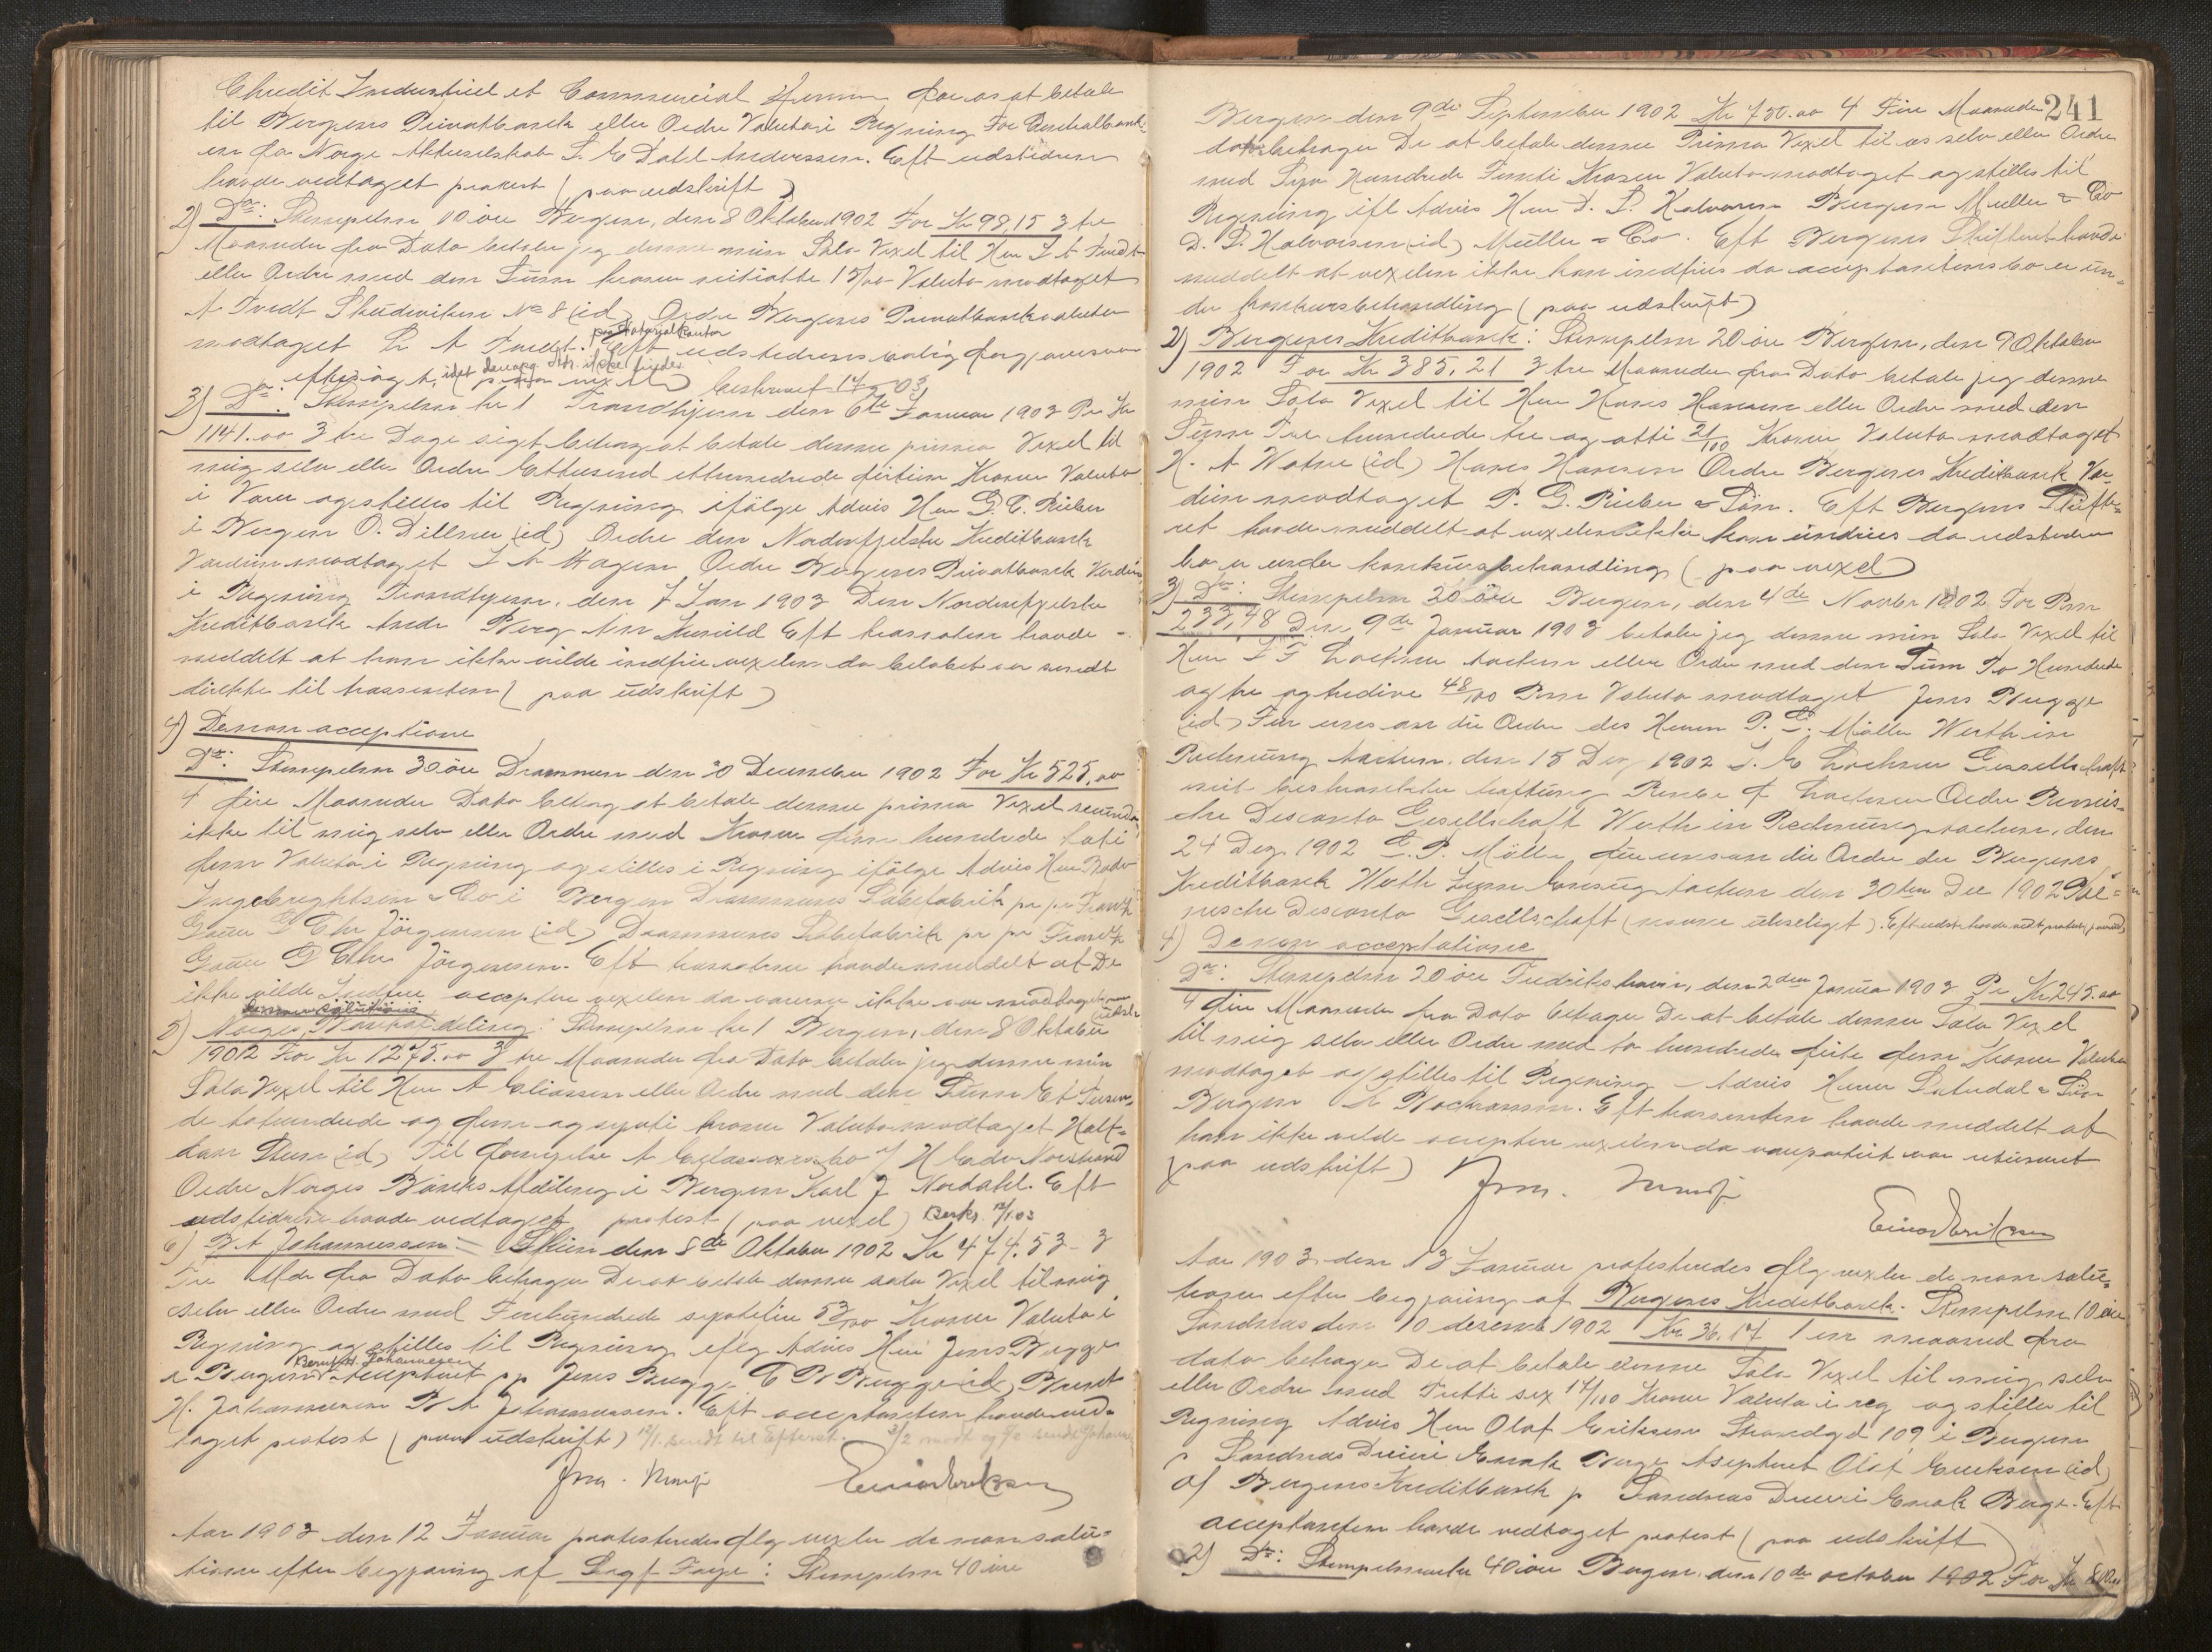 Chredit Industriel et Commercial for os at betale
til Bergens Privatbank eller Ordre Valuta i Regning For Centralbank-
en for Norge Aktieselskab S. E Dahl Andersen. Eft udstederen
havde vedtaget protest (paa udskrift)
2) Do: Stempelm 10 øre Bergen, den 8 Oktober 1902 For Kr 98,15 3 tre
Maaneder fra Dato betaler jeg denne min Sola Vexel til Herr A Tvedt
eller Ordre med den Sum kroner nitiotte 15/00 Valuta modtaget
A Tvedt Skudeviken No 8 (id) Ordre Bergens Privatbank valuta
modtaget A Tvedt. Eft udstederens bolig forgjæves var
paa Notarialkontor
eftersøgt, idet denne ikke findes (paa vexel) beskrevet 17/9 03
3) Do: Stempelm kr 1 Trondhjem den 6te Januar 1903 Pr Kr
1141.00 3 tre Dage sigt behag at betale denne prima Vexel til
mig selv eller Ordre Ettusind ethundrede førtien Kroner Valuta
i Varer og stilles til Regning ifølge Advis Herr G. C. Rieber
i Bergen O. Dillner (id) Ordre den Nordenfjelske Kreditbank
Værdien modtaget Hagen Ordre Bergens Privatbank Værdien
i Regning Trondhjem, den 7 Jan 1903 Den Nordenfjelske
Kreditbank Andr Berg Eft trassaten havde
meddelt at han ikke vilde indfrie vexelen da beløbet var sendt
direkte til trassenten (paa udskrift)
4) De non acceptione
Do: Stempelm 30 øre Drammen den 30 December 1902 For Kr 525,00
4 fire Maaneder Dato behag at betale denne prima Vexel secunda
ikke til mig selv eller Ordre med Kroner fem hundrede toti
fem Valuta i Regning og stilles i Regning ifølge Advis Herr
Ingebrightsen & Co i Bergen Drammens Sæbefabrik pr pr Frantz
Gaue D Chr Jörgensen (id) Drammens Sæbefabrik pr pr Frantz
Gaue D Chr Jörgensen. Eft trassaterne havde meddelt at De
ikke vilde acceptere vexelen da varerne ikke var modtaget
5) Norges Banks afdeling: Stempelm kr 1 Bergen, den 8 Oktober
1902 For Kr 1275.00 3 tre Maaneder fra Dato betaler jeg denne min
Sola Vexel til Herr A Eliassen eller Ordre med den Sum Et Tusen-
de tohundrede og fem og sytti kroner Valuta modtaget Half-
dan (id) Til fornyelse A Eliassens bo H Edv Norstrand
Ordre Norges Banks Afdeling i Bergen Karl J Nordahl. Eft
udstederen havde vedtaget protest (paa vexel) Beskr. 12/1 03
6) B A Johannessen Skien den 8de Oktober 1902 Kr 474.53 - 3
Tre Mdr fra Dato behager De at betale denne sola Vexel til mig
selv eller Ordre med Firehundrede syvtifire 53/100 Kroner Valuta i
Regning og stilles til Regning iflg Advis Herr Jens Bugge
i Bergen Accepteret pp Jens Bugge C Pr Bugge (id) Bernt
Bernt H. Johannesen
H. Johannesen B A Johannessen. Eft acceptanten havde ved-
taget protest (paa udskrift) 14/1 sendt til Efterret.
Jna. Munch
Einar Eriksen
Aar 1903 den 12 Januar protesteredes flg vexler de non solu-
tione efter begjæring af Sagf Faye: Stempelm 40 øre
241
Bergen den 9de September 1902 Kr 750.00 4 Fire Maaneder
dato behager De at betale denne Prima Vexel til os selv eller Ordre
med Syv Hundrede Femti Kroner Valuta modtaget og stilles til
Regning ifl Advis Herr D. S. Halvorsen Bergen Müller & Co
D. S. Halvorsen (id) Müller & Co. Eft Bergens Skifteret havde
meddelt at vexelen ikke kan indfries da acceptantens bo er un-
der konkursbehandling (paa udskrift)
2) Bergens Kreditbank: Stempelm 20 øre Bergen, den 9 Oktober
1902 For Kr 385,21 3 tre Maaneder fra Dato betaler jeg denne
min Sola Vexel til Herr Hans Hansen eller Ordre med den
Sum Tre hundrede tre og otti 21/100 Kroner Valuta modtaget
H. A Watne (id) Hans Hansen Ordre Bergens Kreditbank Vær-
dien modtaget P. G. Rieber & Søn. Eft Bergens Skifte-
ret havde meddelt at vexelen ikke kan indries da udstederens
bo er under konkursbehandling (paa vexel)
3) Do: Stempelm 20 øre Bergen, den 4de Novbr 1902 For Rm
233,48 Den 9de Januar 1903 betaler jeg denne min Sola Vexel til
Herr I F Lochner Aachen eller Ordre med den Sum To Hundrede
og tre og tredive 48/100 Rm Valuta modtaget Jens Bugge
(id) Für uns an die Ordre des Herrn P. G. Möller Werth in
Rechnung Aachen, den 15 Dez 1902 I. F Lochner Gesellschaft
mit beschränkter Haftung Lochner Ordre Rheinis-
che Disconto Gesellschaft Werth in Rechnung Aachen, den
24 Dez 1902 P. G. Möller für uns an die Ordre der Bergens
Kreditbank Werth zum Einzug Aachen den 30ten Dec 1902 Rhei-
nische Disconto Gesellschaft (navne utyseligt). Eft udst. havde vedt. protest (paa vexel)
4) De non acceptatione
Do: Stempelm 20 øre Fredrikshavn, den 2den Januar 1903 Pr Kr 245.00
4 fire Maaneder fra Dato behager De at betale denne Sola Vexel
til mig selv eller Ordre med to hundrede firti fem Kroner Valuta
modtaget og stilles til Regning Advis Herrer Sætredal & Søn
Bergen. Eft trassenten havde meddelt at
han ikke vilde acceptere vexelen da varepartiet var returneret
(paa udskrift) Jna. Munch
Einar Eriksen
Aar 1903 den 13 Januar protesteredes flg vexler de non solu-
tione efter begjæring af Bergens Kreditbank. Stempelm 10 øre
Sandnes den 10 desember 1902 Kr. 36.17 1 en maaned fra
dato behager De at betale denne Sola Vexel til mig selv
eller Ordre med Tretti sex 17/100 Kroner Valuta i reg og stilles til
Regning Advis Herr Olaf Eriksen Strandgd 109 i Bergen
p Sandnes Dreieri Enok Berge Accepteret Olaf Eriksen (id)
of Bergens Kreditbank p Sandnes Dreieri Enok Berge. Eft
acceptanten havde vedtaget protest (paa udskrift)
2) Do: Stempelmerke 40 øre Bergen den 10de october 1902 For Kr